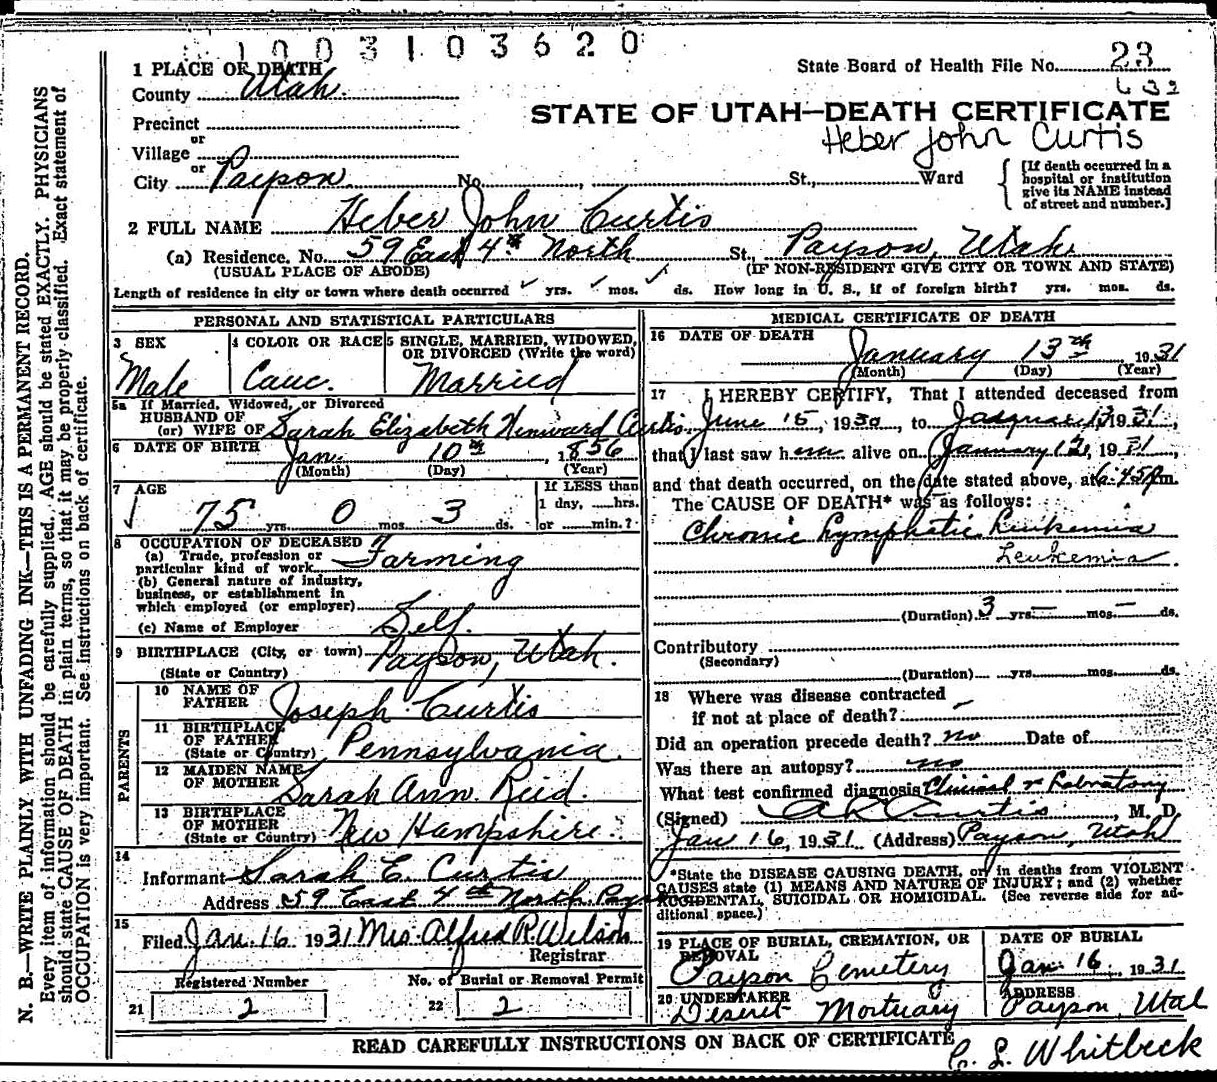 1003103620
1 PLACE OF DEATH
State Board of Health File No. 23
632
County Utah
STATE OF UTAH—DEATH CERTIFICATE
Heber John Curtis
Precinct
or
Village
or
City Payson No. , St., Ward
[If death occurred in a
hospital or institution
give its NAME instead
of street and number.]
2 FULL NAME Heber John Curtis
(a) Residence. No. 59 East 4th North St. Payson, Utah
(USUAL PLACE OF ABODE) (IF NON-RESIDENT GIVE CITY OR TOWN AND STATE)
Length of residence in city or town where death occurred ✓ yrs. ✓ mos. ✓ ds. How long in U. S., if of foreign birth? yrs. mos. ds.
PERSONAL AND STATISTICAL PARTICULARS
3 SEX
Male
4 COLOR OR RACE
Cauc.
5 SINGLE, MARRIED, WIDOWED,
OR DIVORCED (Write the word)
Married
5a If Married, Widowed, or Divorced
HUSBAND OF
(or) WIFE OF Sarah Elizabeth Curtis
6 DATE OF BIRTH Jan. 10th, 1856
(Month) (Day) (Year)
7 AGE
75 yrs. 0 mos. 3 ds.
If LESS than
1 day, hrs.
or min.?
8 OCCUPATION OF DECEASED
(a) Trade, profession or
particular kind of work Farming
(b) General nature of industry,
business, or establishment in
which employed (or employer)
(c) Name of Employer Self.
9 BIRTHPLACE (City, or town) Payson, Utah.
(State or Country)
PARENTS
10 NAME OF
FATHER Joseph Curtis
11 BIRTHPLACE
OF FATHER
(State or Country) Pennsylvania.
12 MAIDEN NAME
OF MOTHER Sarah Ann Reid.
13 BIRTHPLACE
OF MOTHER
(State or Country) New Hampshire.
14
Informant Sarah E. Curtis
Address 59 East 4th North, Payson
15
Filed Jan. 16 1931 Mrs. Alfred R. Wilson
Registrar
Registered Number
21 2
No. of Burial or Removal Permit
22 2
MEDICAL CERTIFICATE OF DEATH
16 DATE OF DEATH
January 13th 1931
(Month) (Day) (Year)
17 I HEREBY CERTIFY, That I attended deceased from
June 15, 1930, to 13 1931,
that I last saw him alive on January 1931,
and that death occurred, on the date stated above, at 6:45 p.m.
The CAUSE OF DEATH* was as follows:
Chronic Lymphatic Leukemia
Leukemia
(Duration) 3 yrs. — mos. — ds.
Contributory
(Secondary)
(Duration) yrs. mos. ds.
18 Where was disease contracted
if not at place of death? –
Did an operation precede death? no Date of
Was there an autopsy? no
What test confirmed diagnosis Clinical & Labratory
(Signed) Curtis, M. D.
Jan 16, 1931 (Address) Payson, Utah
*State the DISEASE CAUSING DEATH, or in deaths from VIOLENT
CAUSES state (1) MEANS AND NATURE OF INJURY; and (2) whether
ACCIDENTAL, SUICIDAL OR HOMICIDAL. (See reverse side for ad-
ditional space.)
19 PLACE OF BURIAL, CREMATION, OR
REMOVAL
Payson Cemetery
DATE OF BURIAL
Jan. 16. 1931
20 UNDERTAKER
Deseret Mortuary
ADDRESS
Payson, Utah
READ CAREFULLY INSTRUCTIONS ON BACK OF CERTIFICATE
C. L. Whitbeck
N. B.—WRITE PLAINLY WITH UNFADING INK—THIS IS A PERMANENT RECORD.
Every item of information should be carefully supplied. AGE should be stated EXACTLY. PHYSICIANS
should state CAUSE OF DEATH in plain terms, so that it may be properly classified. Exact statement of
OCCUPATION is very important. See instructions on back of certificate.